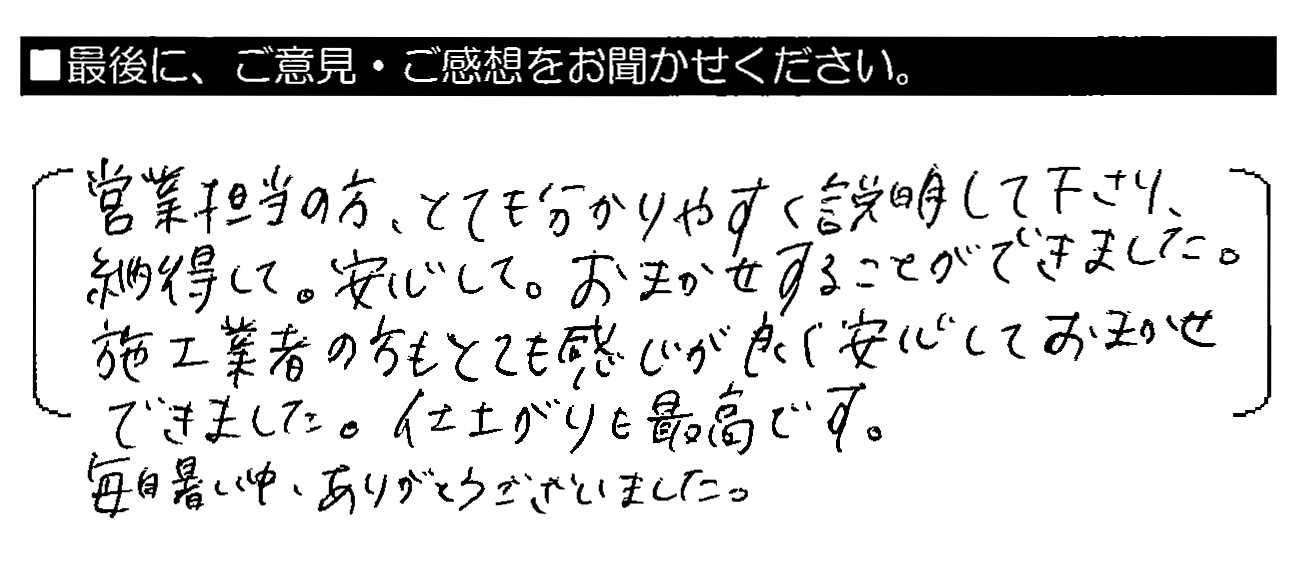 ■最後に、ご意見・ご感想をお聞かせください。
営業担当の方、とても分かりやすく説明して下さり、
納得して。安心して。おまかせすることができました。
施工業者の方もとても感じが良く安心しておまかせ
できました。仕上がりも最高です。
毎日暑い中、ありがとうございました。